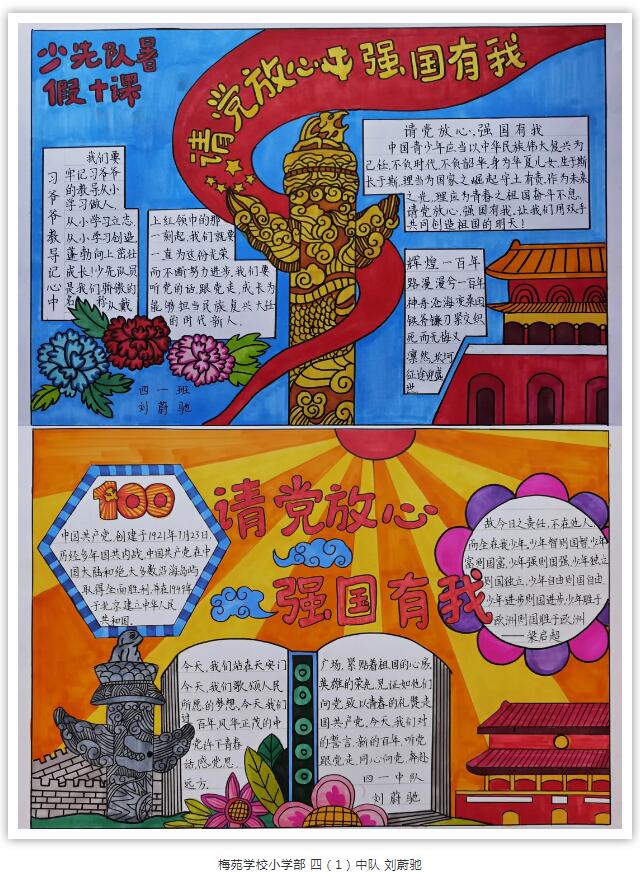 少先队暑
假十课
请党放心 强国有我
习爷爷教导记心中
我们要
牢记习爷爷
的教导从小
学习做人,
从小学习立志,
从小学习创造
蓬勃向上茁壮
成长!少先队员
是我们骄傲的
名称,从戴
上红领巾的那
一刻起,我们就要
一直为这份光荣
而不断努力进步,我们要
听党的话,跟党走,成长为
能够担当民族复兴大任
的时代新人。
请党放心,强国有我
中国青少年应当以中华民族伟大复兴为
己任,不负时代,不负韶华,身为华夏儿女,生于斯
长于斯,理当为国家之崛起守土有责,作为未来
之光,理应为青春之祖国奋斗不息,
请党放心,强国有我,让我们用双手
共同创造祖国的明天!
辉煌一百年
路漫漫兮一百年
神舟沧海要乘风
铁斧镰刀紧交织
死而无悔又
凛然,坎坷
征途迎盛
世
四一班
刘蔚驰
100
请党放心
强国有我
中国共产党,创建于1921年7月23日,
历经多年国共内战,中国共产党在中
国大陆和绝大多数沿海岛屿
取得全面胜利,并在1949年
于北京建立中华人民
共和国。
故今日之责任,不在他人,
而全在我少年,少年智则国智,少年
富则国富,少年强则国强,少年独立
则国独立,少年自由则国自由,
少年进步则国进步,少年胜于
欧洲则国胜于欧洲
——梁启超
今天,我们站在天安门
今天,我们歌颂人民
所愿的梦想,今天,我们
过百年风华正茂的中
党许下青春
话,感党恩,
远方,
广场,紧贴着祖国的心房,
英雄的荣光,见证如他们
问党,致以青春的礼赞,走
国共产党,今天,我们对
的誓言,新的百年,听党
跟党走,同心向党,奔赴
四一中队
刘蔚驰
梅苑学校小学部 四（1）中队 刘蔚驰